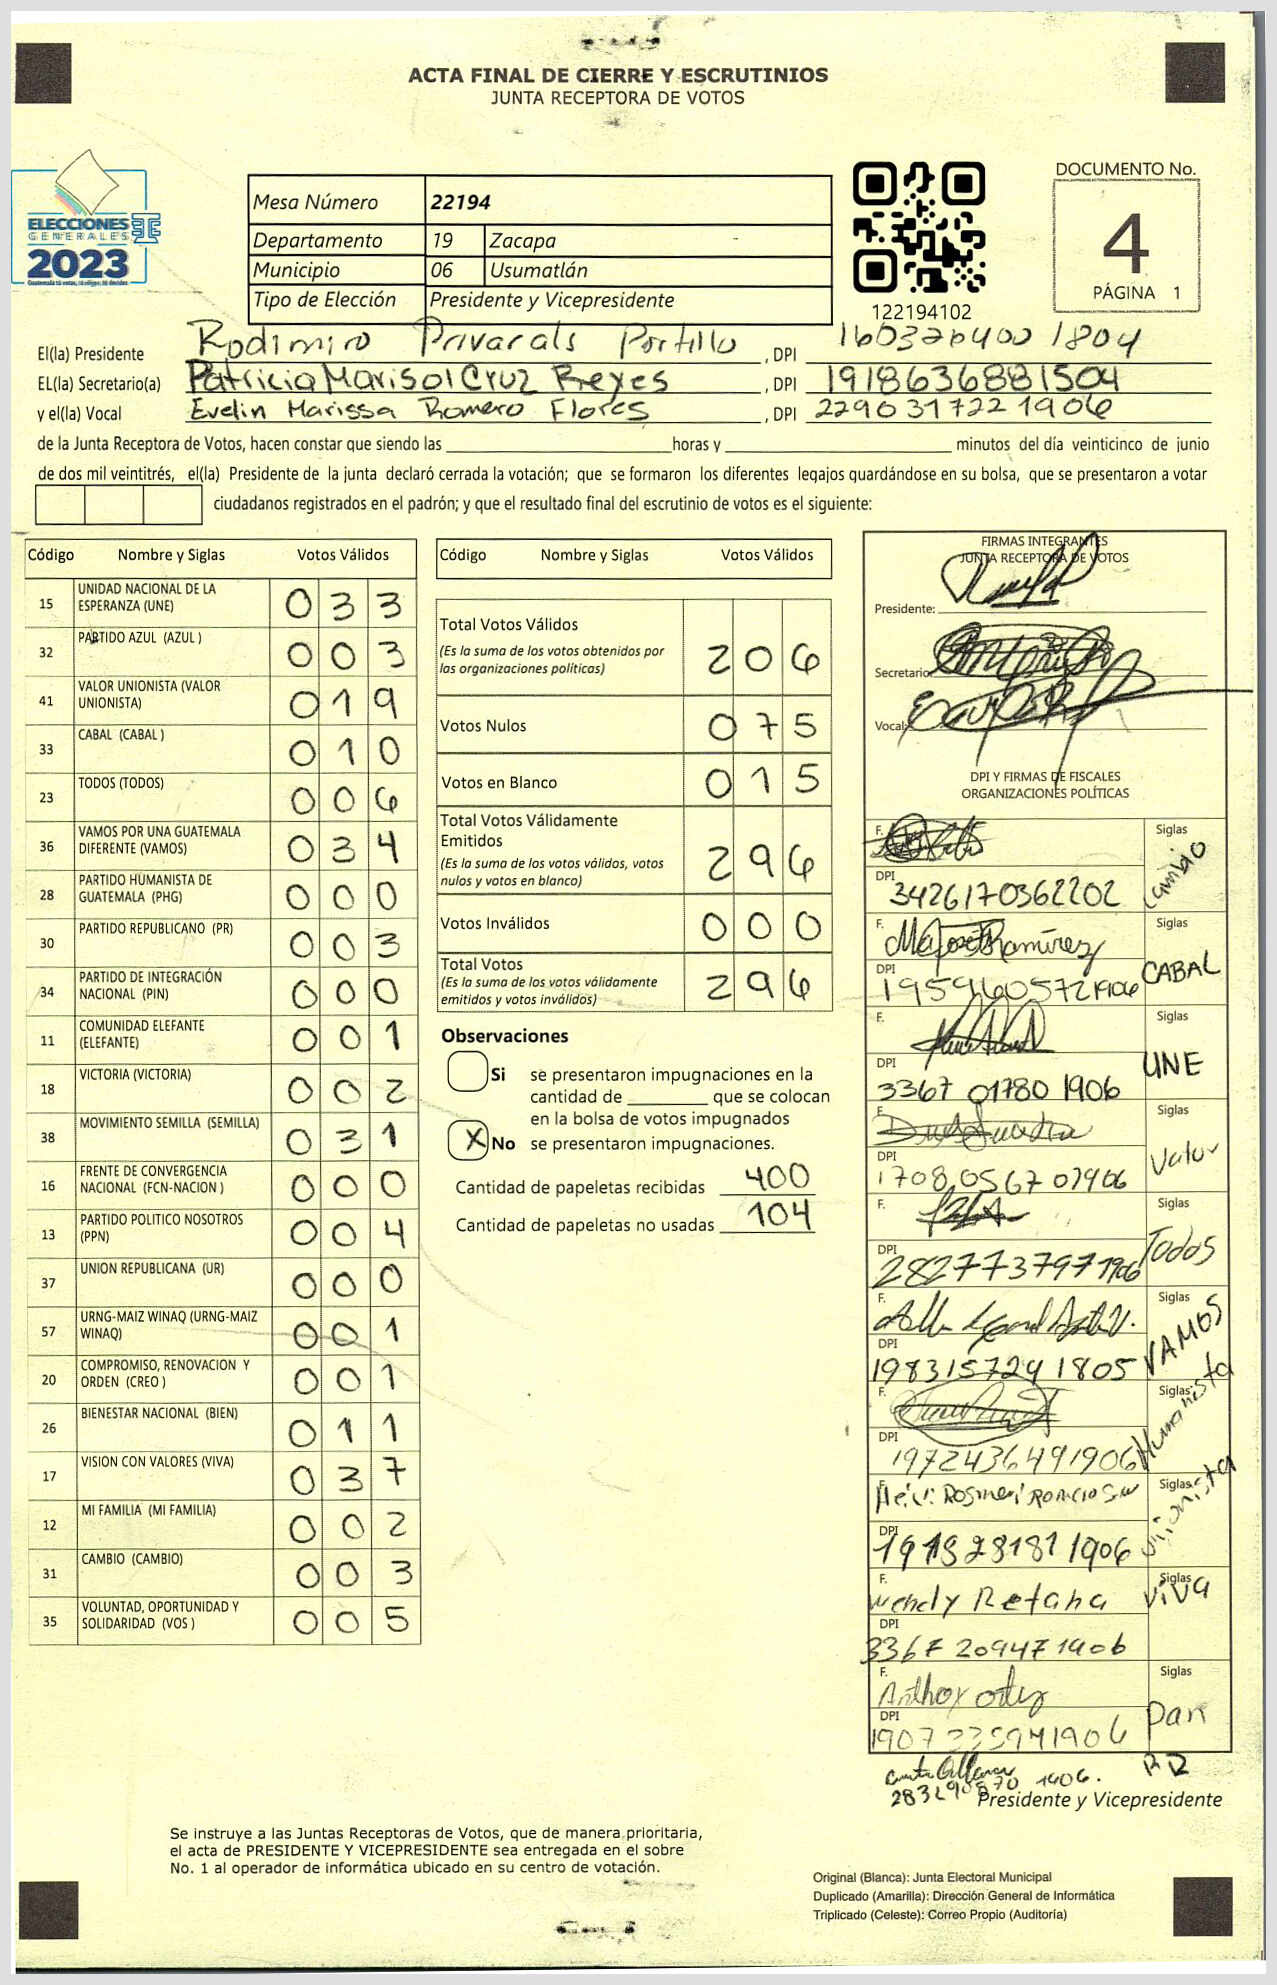 ACTA FINAL DE CIERRE Y ESCRUTINIOS
JUNTA RECEPTORA DE VOTOS
ELECCIONES
GENERALES
2023
Mesa Número 22194
Departamento 19 Zacapa
Municipio 06 Usumatlán
Tipo de Elección Presidente y Vicepresidente
122194102
DOCUMENTO No.
4
PÁGINA 1
El(la) Presidente Rodimiro Privarals Portillo, DPI 1603264001804
EL(la) Secretario(a) Patricia Marisol Cruz Reyes, DPI 1918636881504
y el(la) Vocal Evelin Marissa Romero Flores, DPI 2290317221906
de la Junta Receptora de Votos, hacen constar que siendo las horas y minutos del día veinticinco de junio
de dos mil veintitrés, el(la) Presidente de la junta declaró cerrada la votación; que se formaron los diferentes legajos guardándose en su bolsa, que se presentaron a votar
ciudadanos registrados en el padrón; y que el resultado final del escrutinio de votos es el siguiente:
Código Nombre y Siglas Votos Válidos
15 UNIDAD NACIONAL DE LA ESPERANZA (UNE) 033
32 PARTIDO AZUL (AZUL ) 003
41 VALOR UNIONISTA (VALOR UNIONISTA) 019
33 CABAL (CABAL ) 010
23 TODOS (TODOS) 006
36 VAMOS POR UNA GUATEMALA DIFERENTE (VAMOS) 034
28 PARTIDO HUMANISTA DE GUATEMALA (PHG) 000
30 PARTIDO REPUBLICANO (PR) 003
34 PARTIDO DE INTEGRACIÓN NACIONAL (PIN) 000
11 COMUNIDAD ELEFANTE (ELEFANTE) 001
18 VICTORIA (VICTORIA) 002
38 MOVIMIENTO SEMILLA (SEMILLA) 031
16 FRENTE DE CONVERGENCIA NACIONAL (FCN-NACION ) 000
13 PARTIDO POLITICO NOSOTROS (PPN) 004
37 UNION REPUBLICANA (UR) 000
57 URNG-MAIZ WINAQ (URNG-MAIZ WINAQ) 001
20 COMPROMISO, RENOVACION Y ORDEN (CREO ) 001
26 BIENESTAR NACIONAL (BIEN) 011
17 VISION CON VALORES (VIVA) 037
12 MI FAMILIA (MI FAMILIA) 002
31 CAMBIO (CAMBIO) 003
35 VOLUNTAD, OPORTUNIDAD Y SOLIDARIDAD (VOS ) 005
Código Nombre y Siglas Votos Válidos
Total Votos Válidos 206
(Es la suma de los votos obtenidos por
las organizaciones políticas)
Votos Nulos 075
Votos en Blanco 015
Total Votos Válidamente
Emitidos 296
(Es la suma de los votos válidos, votos
nulos y votos en blanco)
Votos Inválidos 000
Total Votos 296
(Es la suma de los votos válidamente
emitidos y votos inválidos)
Observaciones
Si se presentaron impugnaciones en la
cantidad de que se colocan
en la bolsa de votos impugnados
X No se presentaron impugnaciones.
Cantidad de papeletas recibidas 400
Cantidad de papeletas no usadas 104
FIRMAS INTEGRANTES
JUNTA RECEPTORA DE VOTOS
Presidente:
Secretario
Vocal:
DPI Y FIRMAS DE FISCALES
ORGANIZACIONES POLÍTICAS
F. Siglas Cambio
DPI 3426170362202
F. Ma José Ramírez Siglas CABAL
DPI 1959460571906
F. Siglas UNE
DPI 3367 01780 1906
F. Siglas Valor
DPI 1708 0567 07906
F. Siglas Todos
DPI 2827737971906
F. Siglas VAMOS
DPI 198315724 1805
F. Siglas Humanista
DPI 1972436491906
F. Siglas
DPI 1919281811906
F. Wendy Retana Siglas VIVA
DPI 3367 20947 1906
F. Anthoy ortiz Siglas Pan
DPI
Presidente y Vicepresidente
Se instruye a las Juntas Receptoras de Votos, que de manera prioritaria,
el acta de PRESIDENTE Y VICEPRESIDENTE sea entregada en el sobre
No. 1 al operador de informática ubicado en su centro de votación.
Original (Blanca): Junta Electoral Municipal
Duplicado (Amarilla): Dirección General de Informática
Triplicado (Celeste): Correo Propio (Auditoría)